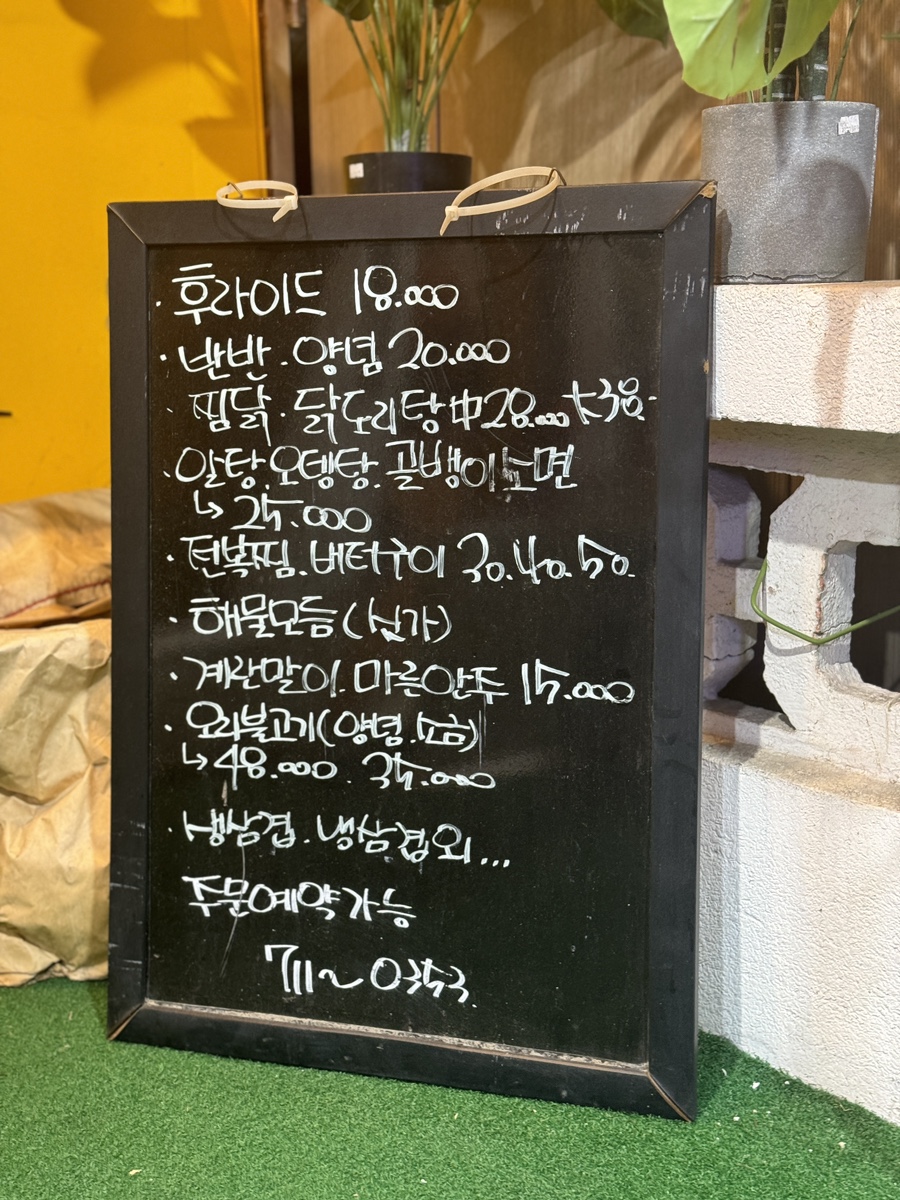 · 후라이드 18.000
· 반반 . 양념 20.000
· 찜닭 . 닭도리탕 中28.000 大38.-
· 알탕. 오뎅탕. 골뱅이소면
↳ 25.000
· 전복찜. 버터구이 30. 40. 50.
· 해물모듬 (싯가)
· 계란말이. 마른안주 15.000
· 오리불고기 (양념. 소금)
↳ 48.000 . 35.000
· 생삼겹 . 냉삼겹 외...
주문예약가능
711~0353.